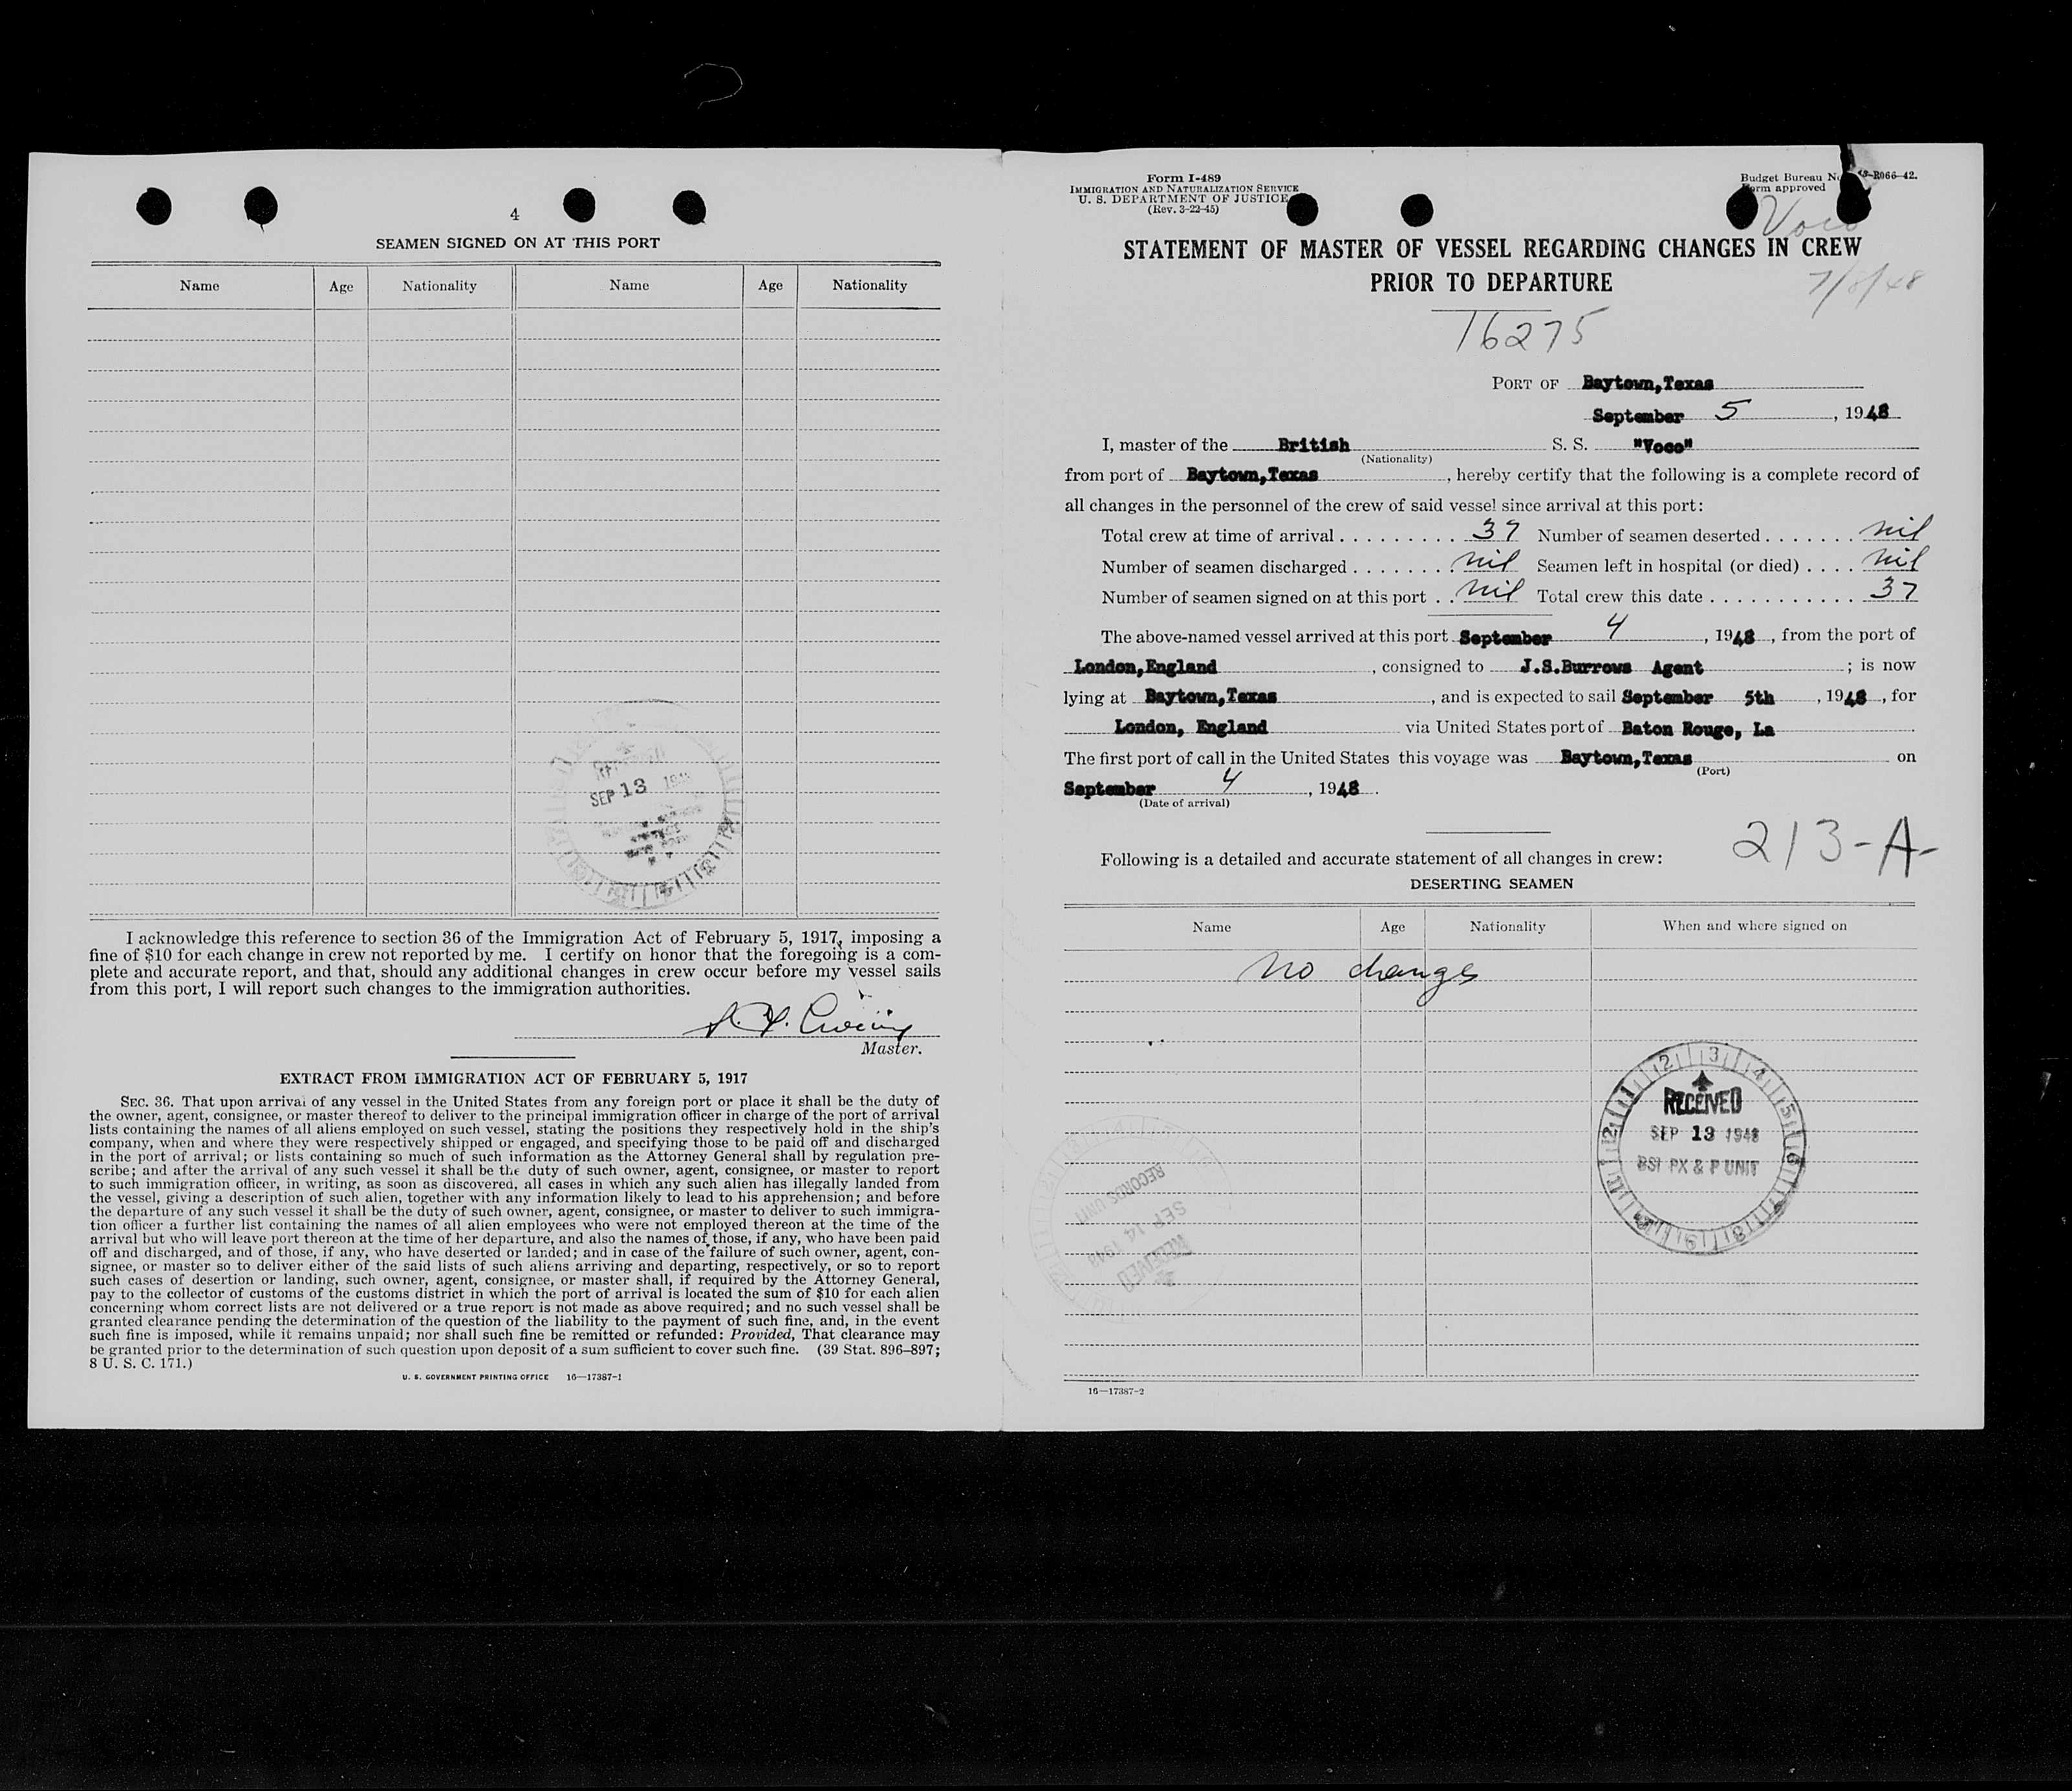 4
SEAMEN SIGNED ON AT THIS PORT
Name Age Nationality Name Age Nationality
SEP 13
I acknowledge this reference to section 36 of the Immigration Act of February 5, 1917, imposing a
fine of $10 for each change in crew not reported by me. I certify on honor that the foregoing is a com-
plete and accurate report, and that, should any additional changes in crew occur before my vessel sails
from this port, I will report such changes to the immigration authorities.
Master.
EXTRACT FROM IMMIGRATION ACT OF FEBRUARY 5, 1917
SEC. 36. That upon arrival of any vessel in the United States from any foreign port or place it shall be the duty of
the owner, agent, consignee, or master thereof to deliver to the principal immigration officer in charge of the port of arrival
lists containing the names of all aliens employed on such vessel, stating the positions they respectively hold in the ship's
company, when and where they were respectively shipped or engaged, and specifying those to be paid off and discharged
in the port of arrival; or lists containing so much of such information as the Attorney General shall by regulation pre-
scribe; and after the arrival of any such vessel it shall be the duty of such owner, agent, consignee, or master to report
to such immigration officer, in writing, as soon as discovered, all cases in which any such alien has illegally landed from
the vessel, giving a description of such alien, together with any information likely to lead to his apprehension; and before
the departure of any such vessel it shall be the duty of such owner, agent, consignee, or master to deliver to such immigra-
tion officer a further list containing the names of all alien employees who were not employed thereon at the time of the
arrival but who will leave port thereon at the time of her departure, and also the names of those, if any, who have been paid
off and discharged, and of those, if any, who have deserted or landed; and in case of the failure of such owner, agent, con-
signee, or master so to deliver either of the said lists of such aliens arriving and departing, respectively, or so to report
such cases of desertion or landing, such owner, agent, consignee, or master shall, if required by the Attorney General,
pay to the collector of customs of the customs district in which the port of arrival is located the sum of $10 for each alien
concerning whom correct lists are not delivered or a true report is not made as above required; and no such vessel shall be
granted clearance pending the determination of the question of the liability to the payment of such fine, and, in the event
such fine is imposed, while it remains unpaid; nor shall such fine be remitted or refunded: Provided, That clearance may
be granted prior to the determination of such question upon deposit of a sum sufficient to cover such fine. (39 Stat. 896–897;
8 U. S. C. 171.)
U. S. GOVERNMENT PRINTING OFFICE 16—17387-1
Form I-489
IMMIGRATION AND NATURALIZATION SERVICE
U. S. DEPARTMENT OF JUSTICE
(Rev. 3-22-45)
Budget Bureau No. 43-R066-42.
Form approved
Voco
STATEMENT OF MASTER OF VESSEL REGARDING CHANGES IN CREW
PRIOR TO DEPARTURE
7/8/48
16275
PORT OF Baytown,Texas
September 5, 1948
I, master of the British S. S. "Voco"
(Nationality)
from port of Baytown,Texas, hereby certify that the following is a complete record of
all changes in the personnel of the crew of said vessel since arrival at this port:
Total crew at time of arrival . . . . . . . . . . 37 Number of seamen deserted . . . . . . . nil
Number of seamen discharged . . . . . . . . nil Seamen left in hospital (or died) . . . . nil
Number of seamen signed on at this port . . nil Total crew this date . . . . . . . . . . . . 37
The above-named vessel arrived at this port September 4, 1948, from the port of
London,England, consigned to J.S.Burrows Agent; is now
lying at Baytown,Texas, and is expected to sail September 5th, 1948, for
London, England via United States port of Baton Rouge, La
The first port of call in the United States this voyage was Baytown,Texas on
(Port)
September 4, 1948.
(Date of arrival)
213-A-
Following is a detailed and accurate statement of all changes in crew:
DESERTING SEAMEN
Name Age Nationality When and where signed on
No changes
RECEIVED
SEP 13 1948
BSI PX & P UNIT
RECEIVED
SEP 14 1948
RECORDS UNIT
16—17387-2